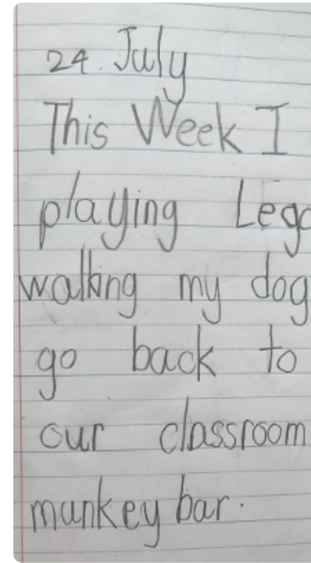 24. July
This Week I
playing Lego
walking my dog
go back to
our classroom
munkey bar.